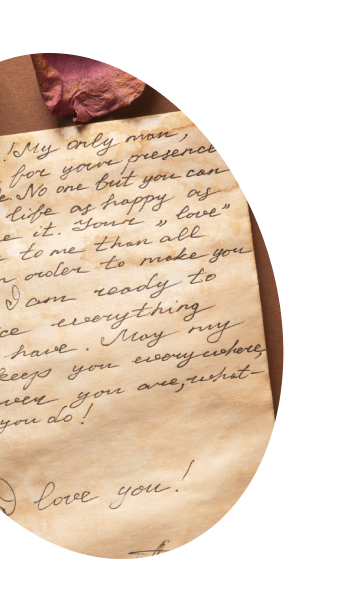 ! My only man,
for your presence
e. No one but you can
life as happy as
e it. Your „love"
to me than all
n order to make you
I am ready to
ce everything
have. May my
keeps you everywhere,
ver you are, what-
you do!
I love you!